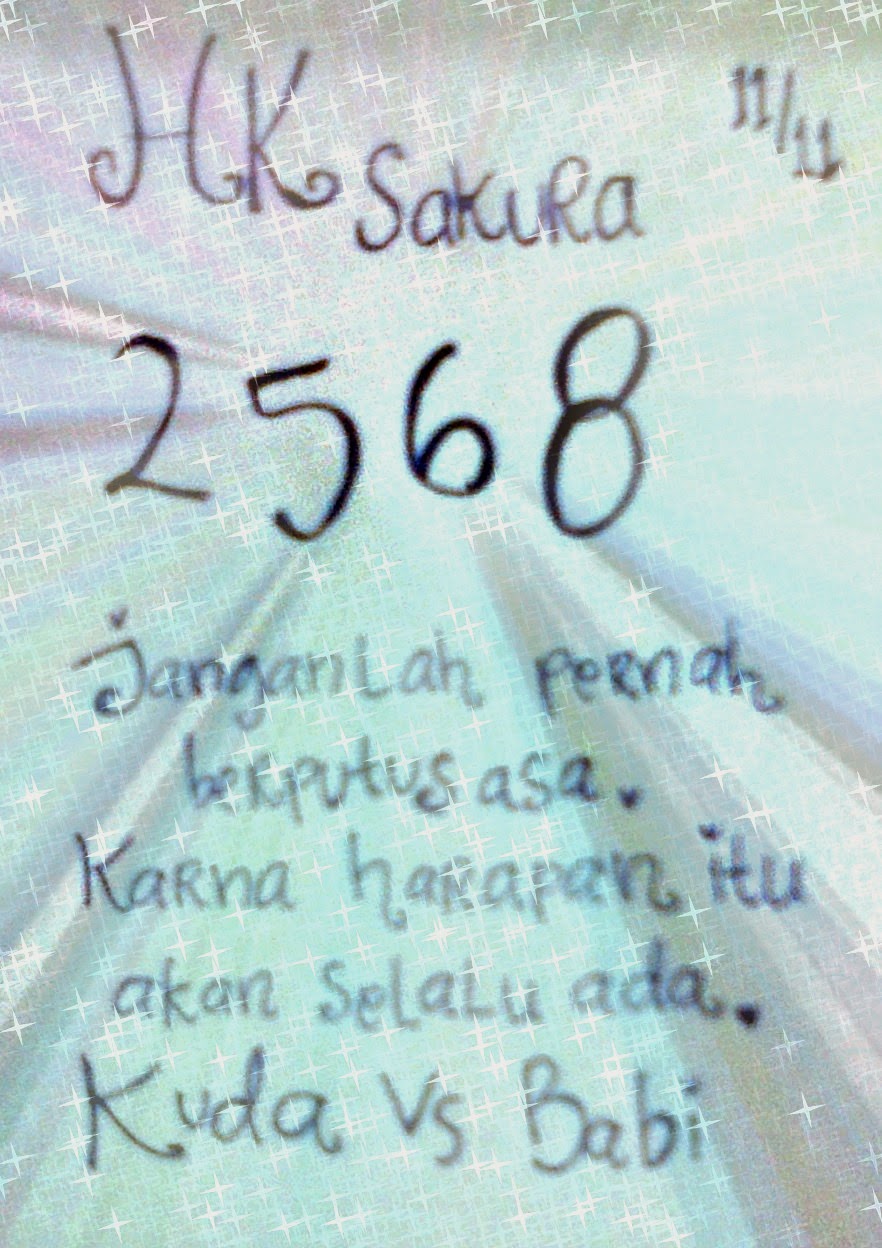 HK Sakura 11/11
2568
Janganlah pernah
berputus asa.
Karna harapan itu
akan selalu ada.
Kuda Vs Babi